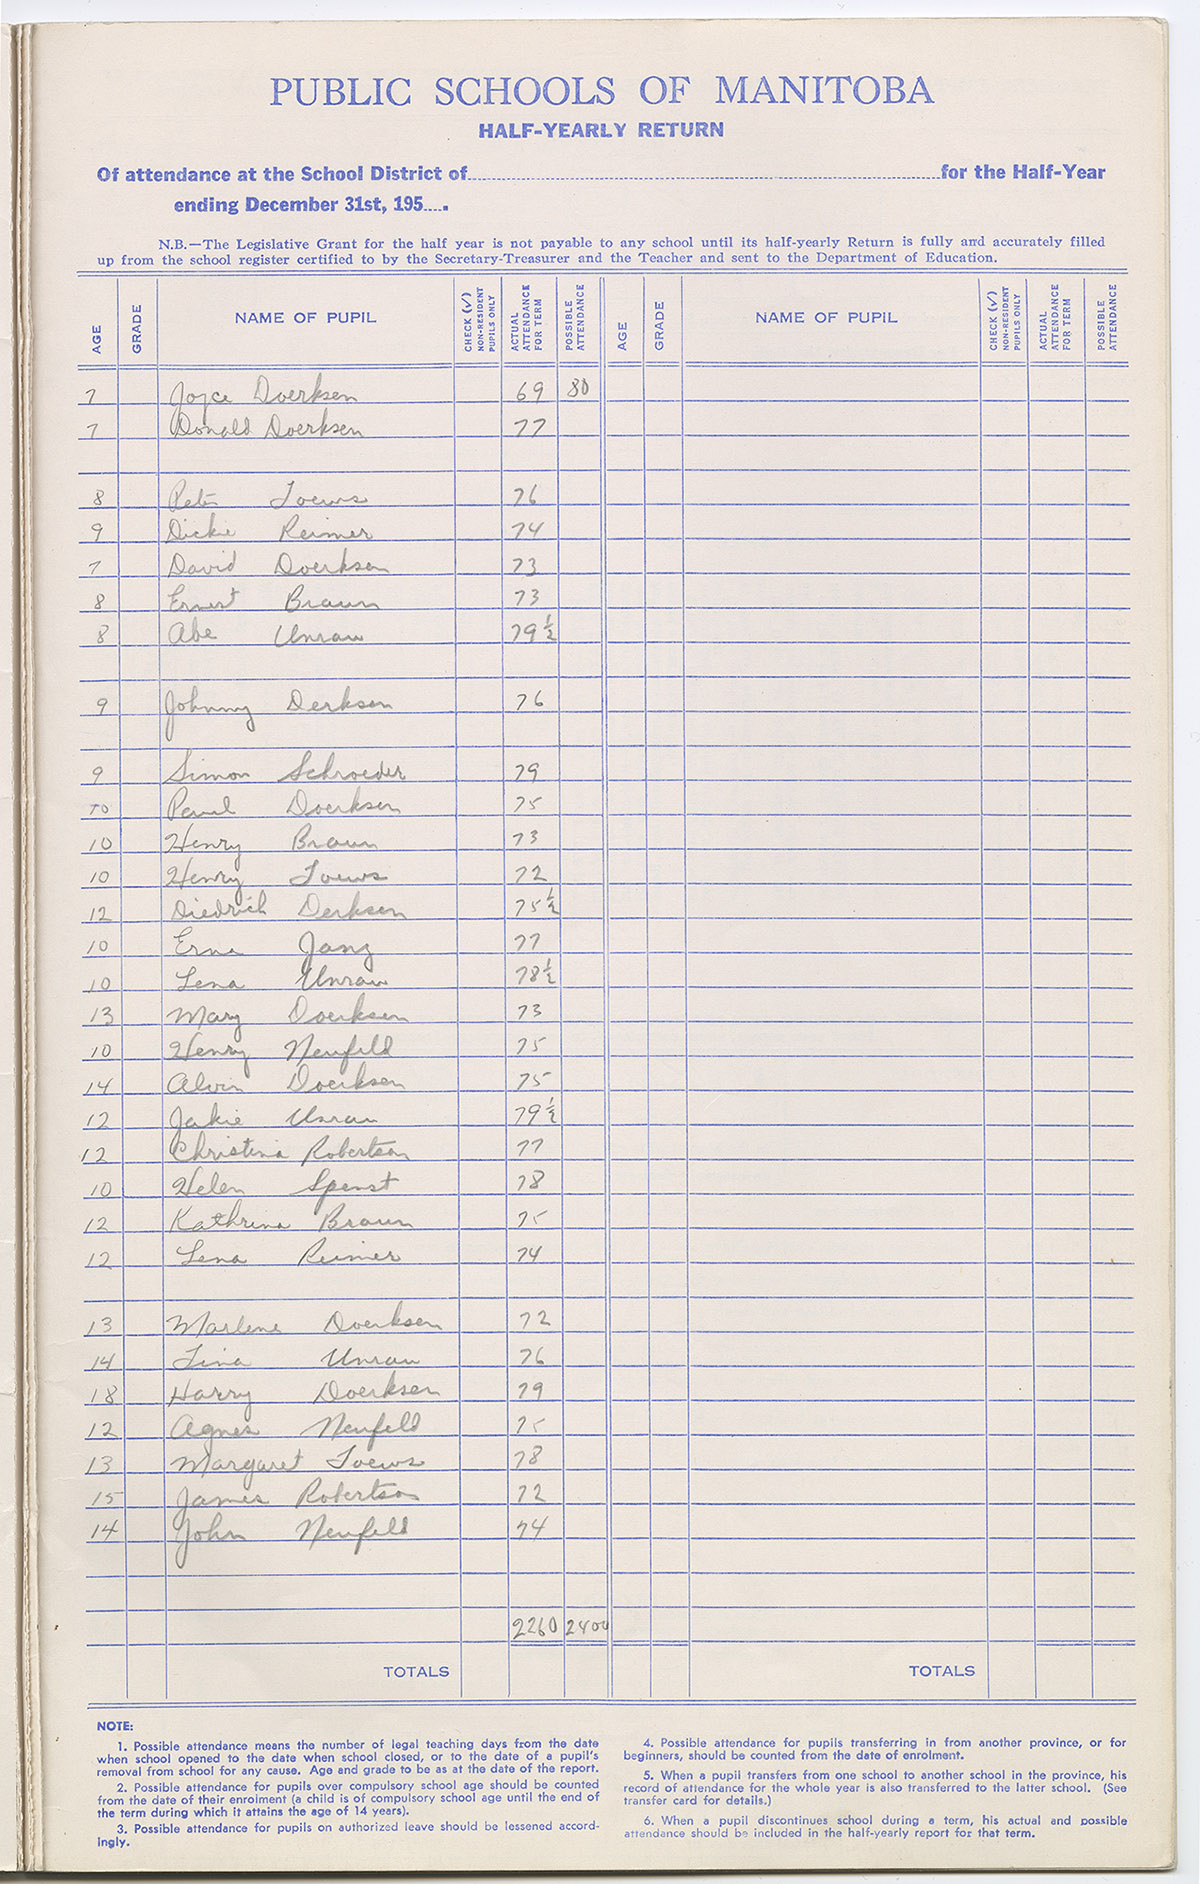 PUBLIC SCHOOLS OF MANITOBA
HALF-YEARLY RETURN
Of attendance at the School District of for the Half-Year
ending December 31st, 195 .
N.B.—The Legislative Grant for the half year is not payable to any school until its half-yearly Return is fully and accurately filled
up from the school register certified to by the Secretary-Treasurer and the Teacher and sent to the Department of Education.
AGE GRADE NAME OF PUPIL CHECK (✓) NON-RESIDENT PUPILS ONLY ACTUAL ATTENDANCE FOR TERM POSSIBLE ATTENDANCE AGE GRADE NAME OF PUPIL CHECK (✓) NON-RESIDENT PUPILS ONLY ACTUAL ATTENDANCE FOR TERM POSSIBLE ATTENDANCE
7 Joyce Doerksen 69 80
7 Donald Doerksen 77
8 Peter Loews 76
9 Dickie Reimer 74
7 David Doerksen 73
8 Ernest Braun 73
8 Abe Unrau 79 ½
9 Johnny Derksen 76
9 Simon Schroeder 79
10 Paul Doerksen 75
10 Henry Braun 73
10 Henry Loews 72
12 Diedrich Derksen 75 ½
10 Erna Janz 77
10 Lena Unrau 78 ½
13 Mary Doerksen 73
10 Henry Neufeld 75
14 Alvin Doerksen 75
12 Jakie Unrau 79 ½
12 Christina Robertson 77
10 Helen Spenst 78
12 Kathrina Braun 75
12 Lena Reimer 74
13 Marlene Doerksen 72
14 Tina Unrau 76
18 Harry Doerksen 79
12 Agnes Neufeld 75
13 Margaret Toews 78
15 James Robertson 72
14 John Neufeld 74
2260 2400
TOTALS TOTALS
NOTE:
1. Possible attendance means the number of legal teaching days from the date
when school opened to the date when school closed, or to the date of a pupil's
removal from school for any cause. Age and grade to be as at the date of the report.
2. Possible attendance for pupils over compulsory school age should be counted
from the date of their enrolment (a child is of compulsory school age until the end of
the term during which it attains the age of 14 years).
3. Possible attendance for pupils on authorized leave should be lessened accord-
ingly.
4. Possible attendance for pupils transferring in from another province, or for
beginners, should be counted from the date of enrolment.
5. When a pupil transfers from one school to another school in the province, his
record of attendance for the whole year is also transferred to the latter school. (See
transfer card for details.)
6. When a pupil discontinues school during a term, his actual and possible
attendance should be included in the half-yearly report for that term.